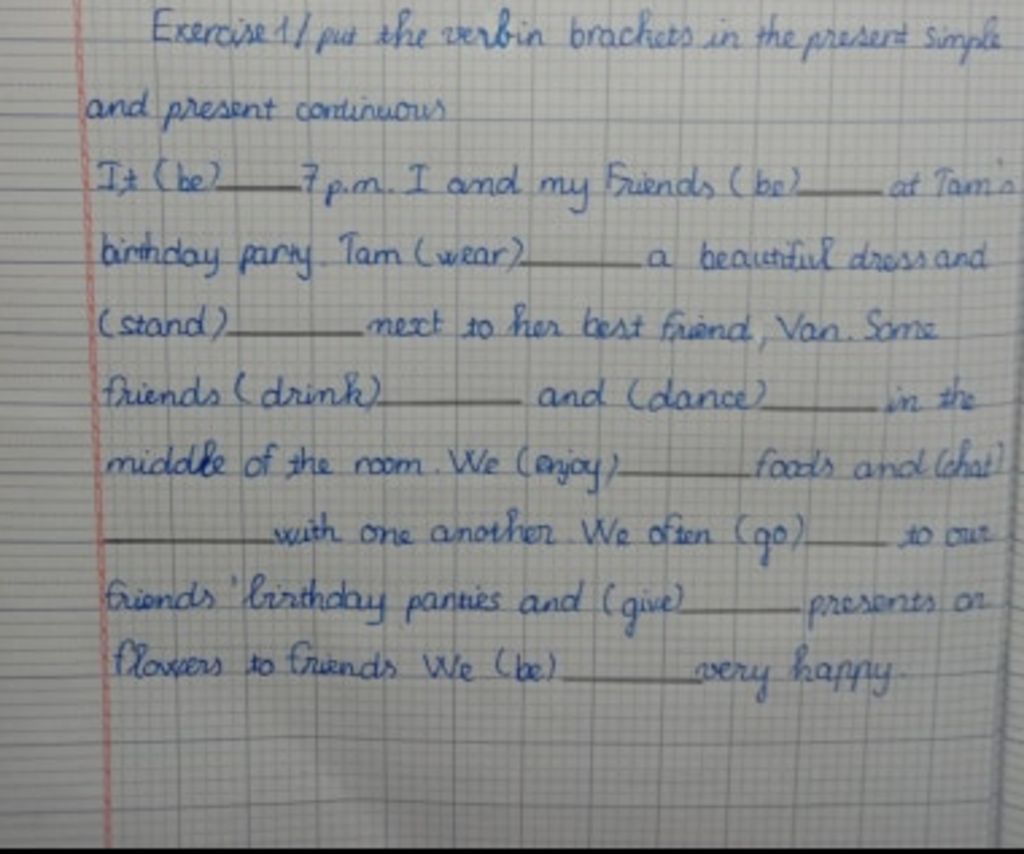 Exercise 1/ put the verb in brackets in the present simple
and present continuous
It (be)____7 p.m. I and my friends (be)____ at Tam's
birthday party. Tam (wear)____a beautiful dress and
(stand)____next to her best friend, Van. Some
friends (drink)____ and (dance)____in the
middle of the room. We (enjoy)____foods and (chat)
____with one another. We often (go)____ to our
friends' birthday parties and (give)____presents or
flowers to friends We (be)____very happy.